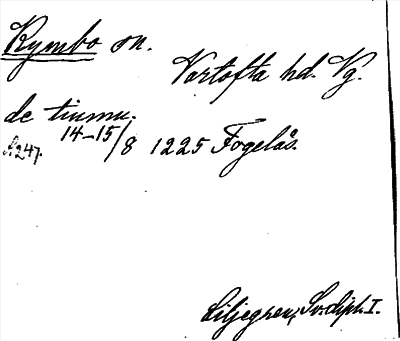 Kymbo sn.
Vartofta hd. Vg.
de tiumu.
14-15/8 1225 Fogelås.
S. 247.
Liljegren, Sv. dipl. I.